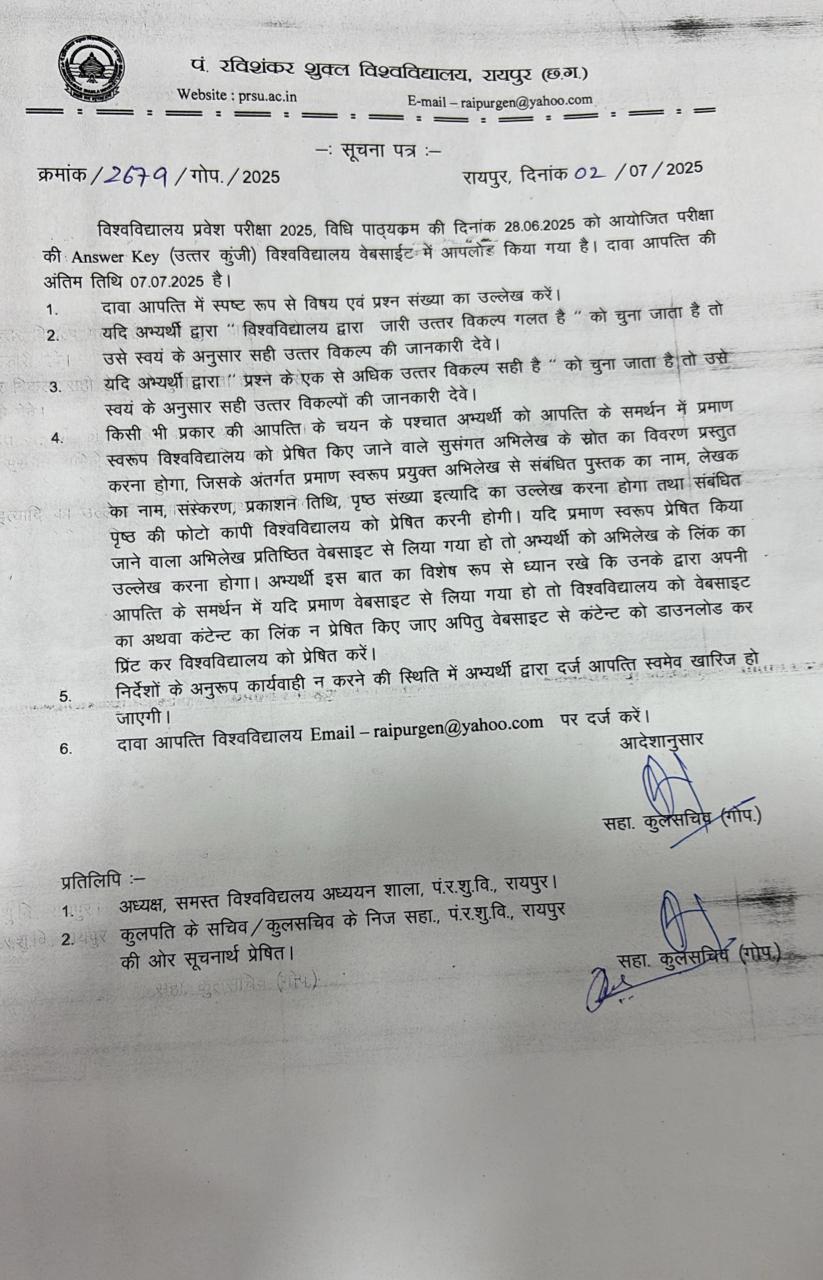 पं. रविशंकर शुक्ल विश्वविद्यालय, रायपुर (छ.ग.)
Website : prsu.ac.in E-mail – raipurgen@yahoo.com
–: सूचना पत्र :–
क्रमांक / 2679 / गोप. / 2025 रायपुर, दिनांक 02 / 07 / 2025
विश्वविद्यालय प्रवेश परीक्षा 2025, विधि पाठ्यक्रम की दिनांक 28.06.2025 को आयोजित परीक्षा
की Answer Key (उत्तर कुंजी) विश्वविद्यालय वेबसाईट में आपलोड किया गया है। दावा आपत्ति की
अंतिम तिथि 07.07.2025 है।
1. दावा आपत्ति में स्पष्ट रूप से विषय एवं प्रश्न संख्या का उल्लेख करें।
2. यदि अभ्यर्थी द्वारा " विश्वविद्यिालय द्वारा जारी उत्तर विकल्प गलत है " को चुना जाता है तो
उसे स्वयं के अनुसार सही उत्तर विकल्प की जानकारी देवे।
3. यदि अभ्यर्थी द्वारा " प्रश्न के एक से अधिक उत्तर विकल्प सही है " को चुना जाता है तो उसे
स्वयं के अनुसार सही उत्तर विकल्पों की जानकारी देवे।
4. किसी भी प्रकार की आपत्ति के चयन के पश्चात अभ्यर्थी को आपत्ति के समर्थन में प्रमाण
स्वरूप विश्वविद्यालय को प्रेषित किए जाने वाले सुसंगत अभिलेख के स्रोत का विवरण प्रस्तुत
करना होगा, जिसके अंतर्गत प्रमाण स्वरूप प्रयुक्त अभिलेख से संबंधित पुस्तक का नाम, लेखक
का नाम, संस्करण, प्रकाशन तिथि, पृष्ठ संख्या इत्यादि का उल्लेख करना होगा तथा संबंधित
पृष्ठ की फोटो कापी विश्वविद्यालय को प्रेषित करनी होगी। यदि प्रमाण स्वरूप प्रेषित किया
जाने वाला अभिलेख प्रतिष्ठित वेबसाइट से लिया गया हो तो अभ्यर्थी को अभिलेख के लिंक का
उल्लेख करना होगा। अभ्यर्थी इस बात का विशेष रूप से ध्यान रखे कि उनके द्वारा अपनी
आपत्ति के समर्थन में यदि प्रमाण वेबसाइट से लिया गया हो तो विश्वविद्यालय को वेबसाइट
का अथवा कंटेन्ट का लिंक न प्रेषित किए जाए अपितु वेबसाइट से कंटेन्ट को डाउनलोड कर
प्रिंट कर विश्वविद्यालय को प्रेषित करें।
5. निर्देशों के अनुरूप कार्यवाही न करने की स्थिति में अभ्यर्थी द्वारा दर्ज आपत्ति स्वमेव खारिज हो
जाएगी।
6. दावा आपत्ति विश्वविद्यालय Email – raipurgen@yahoo.com पर दर्ज करें।
आदेशानुसार
सहा. कुलसचिव (गोप.)
प्रतिलिपि :–
1. अध्यक्ष, समस्त विश्वविद्यलय अध्ययन शाला, पं.र.शु.वि., रायपुर।
2. कुलपति के सचिव/कुलसचिव के निज सहा., पं.र.शु.वि., रायपुर
की ओर सूचनार्थ प्रेषित।
सहा. कुलसचिव (गोप.)